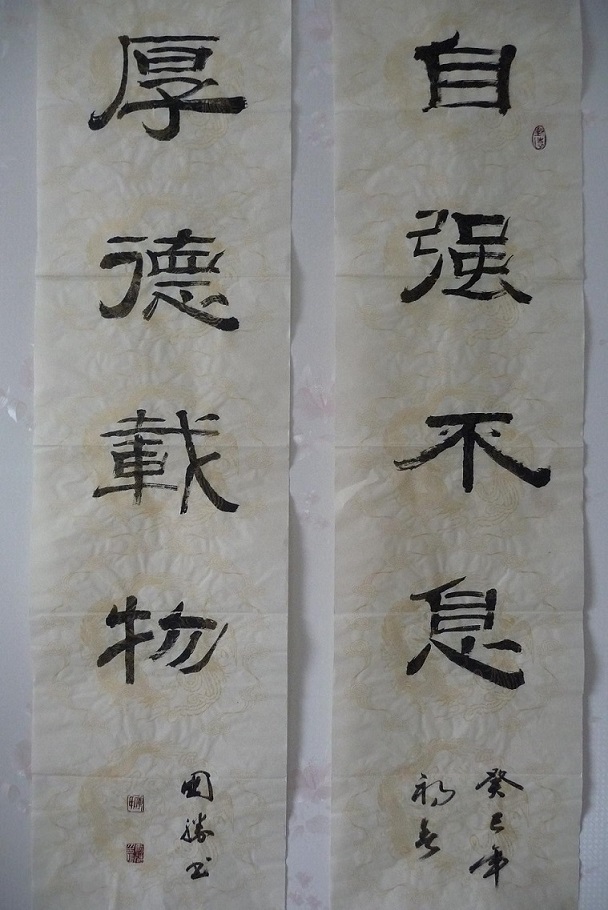 自强不息
癸巳年
初春
厚德載物
國勝书